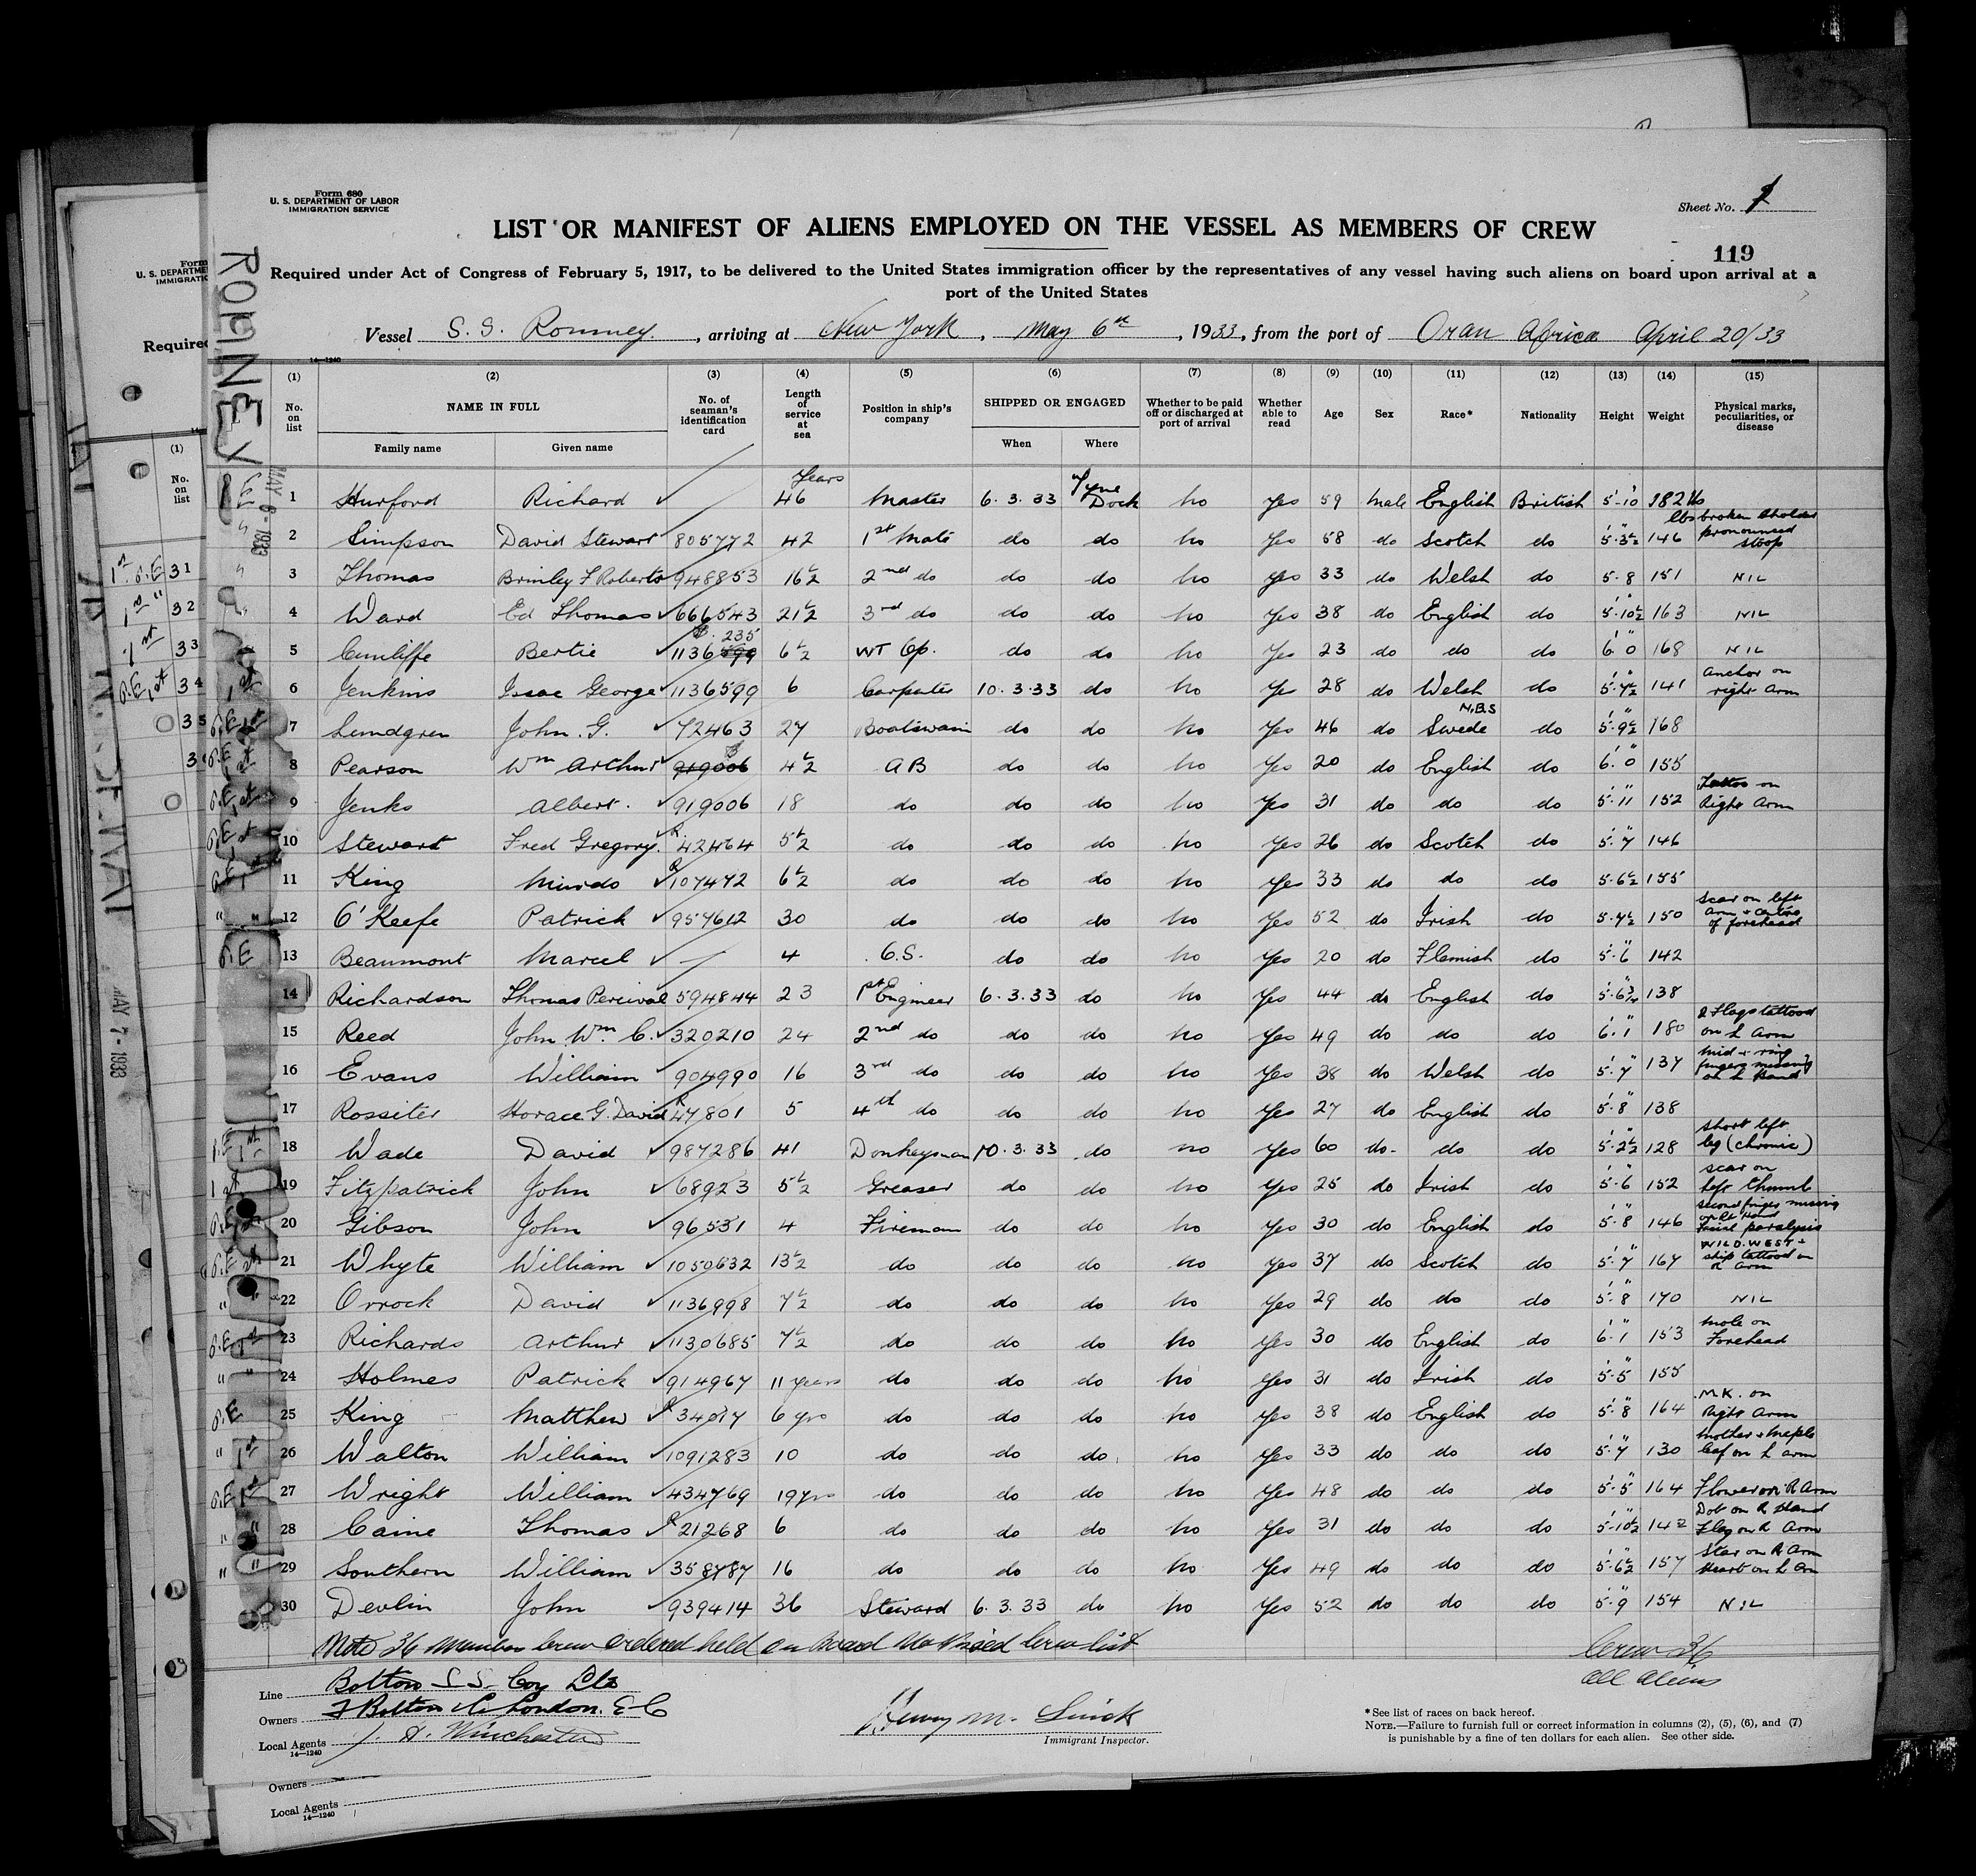 Form 680
U. S. DEPARTMENT OF LABOR
IMMIGRATION SERVICE
Sheet No. 1
LIST OR MANIFEST OF ALIENS EMPLOYED ON THE VESSEL AS MEMBERS OF CREW
119
Required under Act of Congress of February 5, 1917, to be delivered to the United States immigration officer by the representatives of any vessel having such aliens on board upon arrival at a
port of the United States
Vessel S. S. Romney, arriving at New York, May 6th, 1933, from the port of Oran Africa April 20/33
14—1240
(1) (2) (3) (4) (5) (6) (7) (8) (9) (10) (11) (12) (13) (14) (15)
No. on list NAME IN FULL Family name Given name No. of seaman's identification card Length of service at sea Position in ship's company SHIPPED OR ENGAGED When Where Whether to be paid off or discharged at port of arrival Whether able to read Age Sex Race* Nationality Height Weight Physical marks, peculiarities, or disease
1 Hurford Richard 46 Years Master 6.3.33 Tyne Dock no Yes 59 Male English British 5'-10 182 lb
2 Simpson David Stewart 805772 42 1st Mate do do no Yes 58 do Scotch do 5'-3½" 146 lbs broken sholder pronounced stoop
3 Thomas Brinley F Roberts 948853 16½ 2nd do do do no Yes 33 do Welsh do 5-8 151 NIL
4 Ward Ed Thomas 666543 21½ 3rd do do do no Yes 38 do English do 5'-10½" 163 NIL
5 Cunliffe Bertie 1136 235 6½ WT Op. do do no Yes 23 do do do 6'-0" 168 NIL
6 Jenkins Isaac George 1136599 6 Carpenter 10.3.33 do no Yes 28 do Welsh do 5'-7½" 141 anchor on right arm
7 Lundgren John. G. 72463 27 Boatswain do do no Yes 46 do N.B.S Swede do 5'-9½" 168
8 Pearson Wm Arthur 919006 4½ AB do do no Yes 20 do English do 6'-0" 155
9 Jenks Albert. 919006 18 do do do no Yes 31 do do do 5'-11" 152 Tattoo on Right Arm
10 Stewart Fred Gregory. R 42464 5½ do do do no Yes 26 do Scotch do 5'-7" 146
11 King Murdo R 107472 6½ do do do no Yes 33 do do do 5-6½ 155
12 O'Keefe Patrick 957612 30 do do do no Yes 52 do Irish do 5-7½ 150 scar on left arm + centre of forehead
13 Beaumont Marcel — 4 O.S. do do no Yes 20 do Flemish do 5'-6" 142
14 Richardson Thomas Percival 594844 23 1st Engineer 6.3.33 do no Yes 44 do English do 5'-6¾" 138
15 Reed John Wm. C. 320210 24 2nd do do do no Yes 49 do do do 6'-1" 180 2 Flags tattood on L arm
16 Evans William 904990 16 3rd do do do no Yes 38 do Welsh do 5'-7" 137 Mid + ring fingers missing on L Hand
17 Rossiter Horace G. David R 47801 5 4th do do do no Yes 27 do English do 5'-8" 138
18 Wade David 987286 41 Donkeyman 10.3.33 do no Yes 60 do do do 5'-2½" 128 short left leg (chronic)
19 Fitzpatrick John 68923 5½ Greaser do do no Yes 25 do Irish do 5'-6" 152 scar on Left thumb
20 Gibson John 96531 4 Fireman do do no Yes 30 do English do 5'-8" 146 second finger missing on Lt Hand Facial paralysis
21 Whyte William 1050632 13½ do do do no Yes 37 do Scotch do 5'-7" 167 WILD.WEST + ship tattood on R arm
22 Orrock David 1136998 7½ do do do no Yes 29 do do do 5'-8" 170 NIL
23 Richards Arthur 1130685 7½ do do do no Yes 30 do English do 6'-1" 153 Mole on Forehead
24 Holmes Patrick 914967 11 years do do do no Yes 31 do Irish do 5'-5" 155
25 King Matthew R 34017 6 yrs do do do no Yes 38 do English do 5'-8" 164 M.K. on Right Arm
26 Walton William 1091283 10 do do do no Yes 33 do do do 5'-7" 130 Mother + Maple leaf on L arm
27 Wright William 434769 19 yrs do do do no Yes 48 do do do 5'-5" 164 Flower on R Arm
28 Caine Thomas R 21268 6 do do do no Yes 31 do do do 5'-10½" 142 Dot on R Hand Flag on R Arm
29 Southern William 358787 16 do do do no Yes 49 do do do 5'-6½" 157 Star on R Arm Heart on L Arm
30 Devlin John 939414 36 Steward 6.3.33 do no Yes 52 do do do 5'-9" 154 NIL
Note 36 Members Crew ordered held on board No Visaed Crew list
Crew 36
All Aliens
Line Bolton S.S. Coy Ltd
Owners F Bolton & Co London. E C
Local Agents J. H. Winchester
14—1240
Henry M. Linick
Immigrant Inspector.
* See list of races on back hereof.
NOTE.—Failure to furnish full or correct information in columns (2), (5), (6), and (7)
is punishable by a fine of ten dollars for each alien. See other side.
Owners
Local Agents
14—1240
ROMNEY
MAY 6 - 1933
MAY 7 - 1933